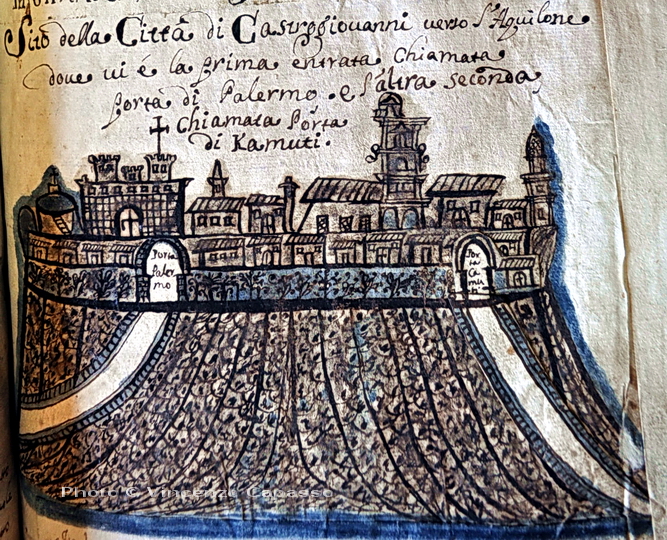 Sito della Città di Castrogiovanni verso l'Aquilone
dove vi é la prima entrata Chiamata
Porta di Palermo. e l'altra seconda
Chiamata Porta
di Kamuti.
Porta
Paler
mo
Por
ta
Ca
mu
ti
Photo © Vincenzo Capasso